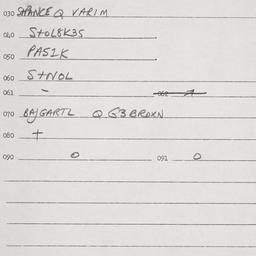 030 SPANCE Q VARIM
040 StOL8K3S
050 PAS1K
060 S+NOL
061 -
070 BAJGARTL Q G3BROXN
080 +
090 0 091 0